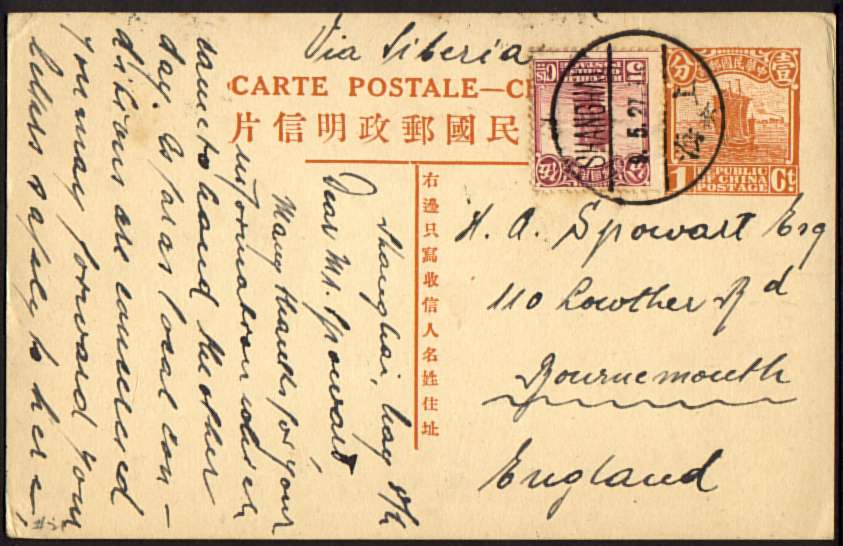 Via Siberia
CARTE POSTALE—CH
片信明政郵國民
右邊只寫收信人名姓住址
SHANGHAI
5.27
上海
分 壹
REPUBLIC
OF CHINA
POSTAGE
1 Ct
H. A. Spowart Esq
110 Lowther Rd
Bournemouth
England
Shanghai, May 8th
Dear Mr. Spowart
Many thanks for your
information which
came to hand the other
day. As far as local con-
ditions are concerned
you may forward your
letters safely to here